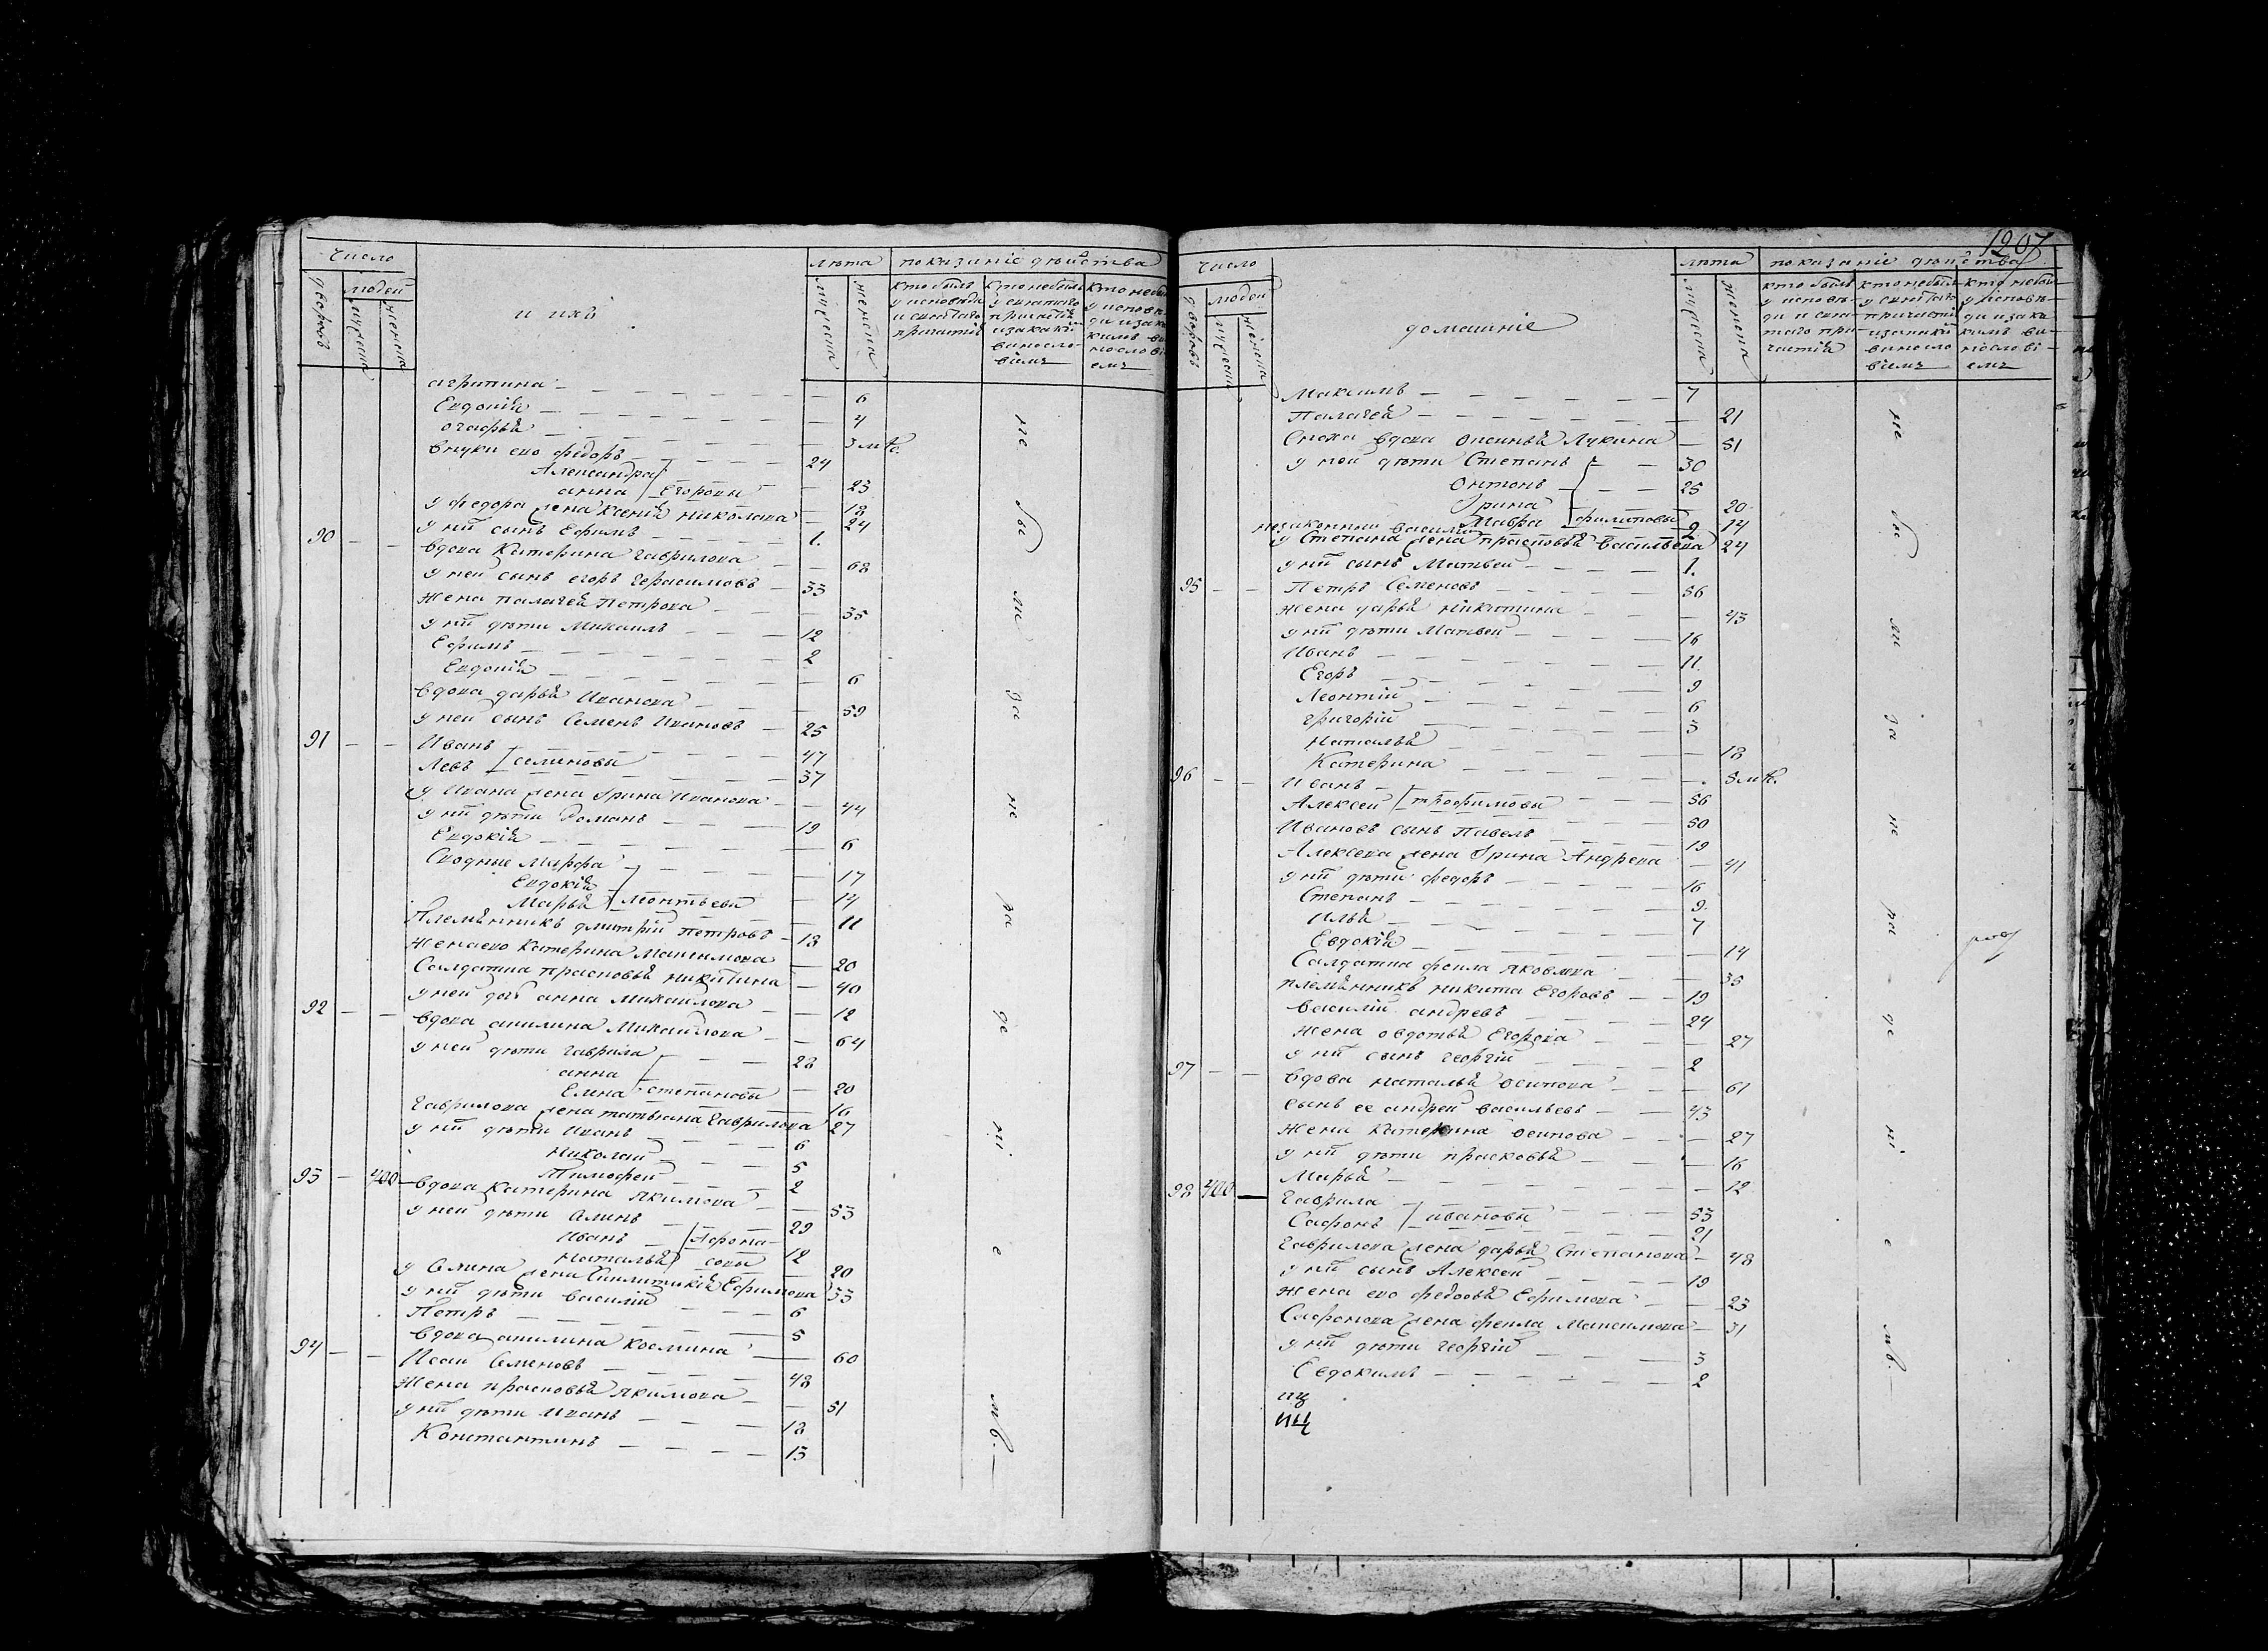 число
дворовъ
людей
мужеска
женска
и ихъ
лѣта
мужеска
женска
показаніе дѣйства
кто былъ
у исповѣди
и святаго
причастія
кто небылъ
у святаго
причастія
изакакимъ
винословіемъ
кто небылъ
у исповѣди
изакакимъ
винословіемъ
агрипина 6
Евдокія 4
огафья 3 мѣ.
внуки ево федоръ 24
Александра 23
анна Егоровы 18
у федора жена Ксенія николаева 24
у нихъ сынъ Ефимъ 1.
90 вдова Катерина гаврилова 68
у ней сынъ егоръ герасимовъ 33
жена палагея Петрова 35
у нихъ дѣти Михаилъ 12
Ефимъ 2
Евдокія 6
вдова дарья Иванова 59
у ней сынъ Семенъ Ивановъ 25
91 Иванъ 47
Левъ семеновы 37
у Ивана жена Ирина Иванова 44
у нихъ дѣти Романъ 19
Евдокія 6
Сводные Марфа 17
Евдокія 14
Марья леонтьевы 11
Племянникъ дмитрій петровъ 18
жена ево Катерина Максимова 20
Салдатка прасковья никитина 40
у ней дочь анна Михайлова 12
92 вдова акилина Михайлова 64
у ней дѣти гаврила 28
анна 20
Елена степановы 16
гаврилова жена татьяна гаврилова 27
у нихъ дѣти Иванъ 6
Николай 5
Тимофей 2
93 400 вдова Катерина якимова 53
у ней дѣти Семенъ 29
Иванъ Афона- 12
наталья совы 20
у Семена жена Ефимова 33
у нихъ дѣти василій 6
Петръ 5
вдова акилина Козмина 60
94 Исаи Семеновъ 48
жена прасковья якимова 51
у нихъ дѣти Иванъ 18
Константинъ 13
не бы ли за не ра де ні е мъ.
1207
число
дворовъ
людей
мужеска
женска
домашніе
лѣта
мужеска
женска
показаніе дѣйства
кто былъ
у исповѣ-
ди и свя-
таго при-
частія
кто небылъ
у святаго
причастія
изакакимъ
винословіемъ
кто небылъ
у исповѣ-
ди изака
кимъ ви-
нословіемъ
Максимъ 7
Палагея 21
Сноха вдова Аксинья Лукина 51
у ней дѣти Степанъ 30
Антонъ 25
Ирина 20
Мавра филиповы 14
незаконный василій 2
у Степана жена прасковья васильева 24
у нихъ сынъ Матвей 1.
95 Петръ Семеновъ 56
жена дарья никитина 43
у нихъ дѣти Матвей 16
Иванъ 11
Егоръ 9
Леонтій 6
григорій 3
наталья 18
Катерина 8 мѣ.
96 Иванъ 56
Алексей трофимовы 50
Ивановъ сынъ павелъ 19
Алексева жена Ирина Андрева 41
у нихъ дѣти федоръ 16
Степанъ 9
Илья 7
Евдокія 14
Салдатка фекла яковлева 35
племянникъ никита Егоровъ 19
василій андревъ 24
жена овдотья Егорова 27
у нихъ сынъ георгій 2
97 вдова наталья осипова 61
сынъ ее андрей васильевъ 43
жена катерина осипова 27
у нихъ дѣти прасковья 16
Марья 12
98 400 гаврила 53
Сафонъ ивановы 21
гаврилова жена дарья Степанова 48
у нихъ сынъ Алексей 19
жена ево федосья Ефимова 23
Сафонова жена фекла Максимова 31
у нихъ дѣти георгій 3
Евдокимъ 2
не бы ли за не ра де ні е мъ.